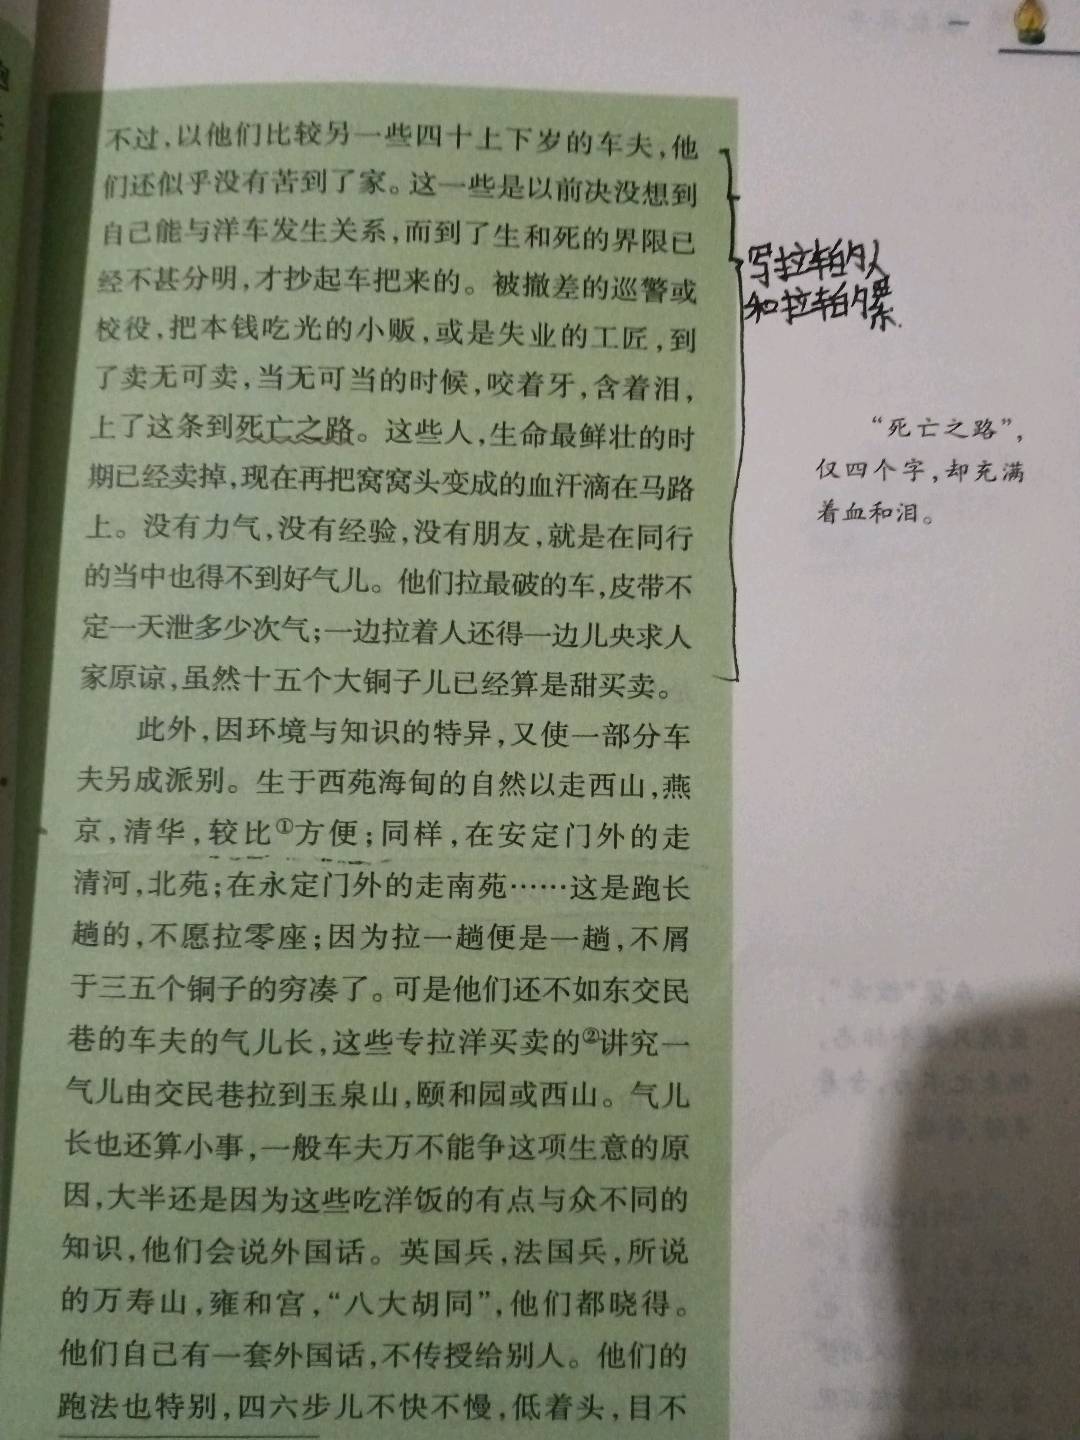 不过，以他们比较另一些四十上下岁的车夫，他
们还似乎没有苦到了家。这一些是以前决没想到
自己能与洋车发生关系，而到了生和死的界限已
经不甚分明，才抄起车把来的。被撤差的巡警或
校役，把本钱吃光的小贩，或是失业的工匠，到
了卖无可卖，当无可当的时候，咬着牙，含着泪，
上了这条到死亡之路。这些人，生命最鲜壮的时
期已经卖掉，现在再把窝窝头变成的血汗滴在马路
上。没有力气，没有经验，没有朋友，就是在同行
的当中也得不到好气儿。他们拉最破的车，皮带不
定一天泄多少次气；一边拉着人还得一边儿央求人
家原谅，虽然十五个大铜子儿已经算是甜买卖。
此外，因环境与知识的特异，又使一部分车
夫另成派别。生于西苑海甸的自然以走西山，燕
京，清华，较比①方便；同样，在安定门外的走
清河，北苑；在永定门外的走南苑……这是跑长
趟的，不愿拉零座；因为拉一趟便是一趟，不屑
于三五个铜子的穷凑了。可是他们还不如东交民
巷的车夫的气儿长，这些专拉洋买卖的②讲究一
气儿由交民巷拉到玉泉山，颐和园或西山。气儿
长也还算小事，一般车夫万不能争这项生意的原
因，大半还是因为这些吃洋饭的有点与众不同的
知识，他们会说外国话。英国兵，法国兵，所说
的万寿山，雍和宫，“八大胡同”，他们都晓得。
他们自己有一套外国话，不传授给别人。他们的
跑法也特别，四六步儿不快不慢，低着头，目不
写拉车的人
和拉车的累.
“死亡之路”，
仅四个字，却充满
着血和泪。